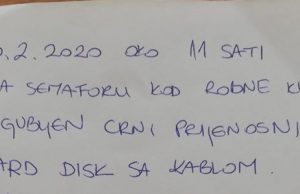 .2.2020 OKO 11 SATI
A SEMAFORU KOD ROBNE K
GUBLJEN CRNI PRIJENOSNI
ARD DISK SA KABLOM.